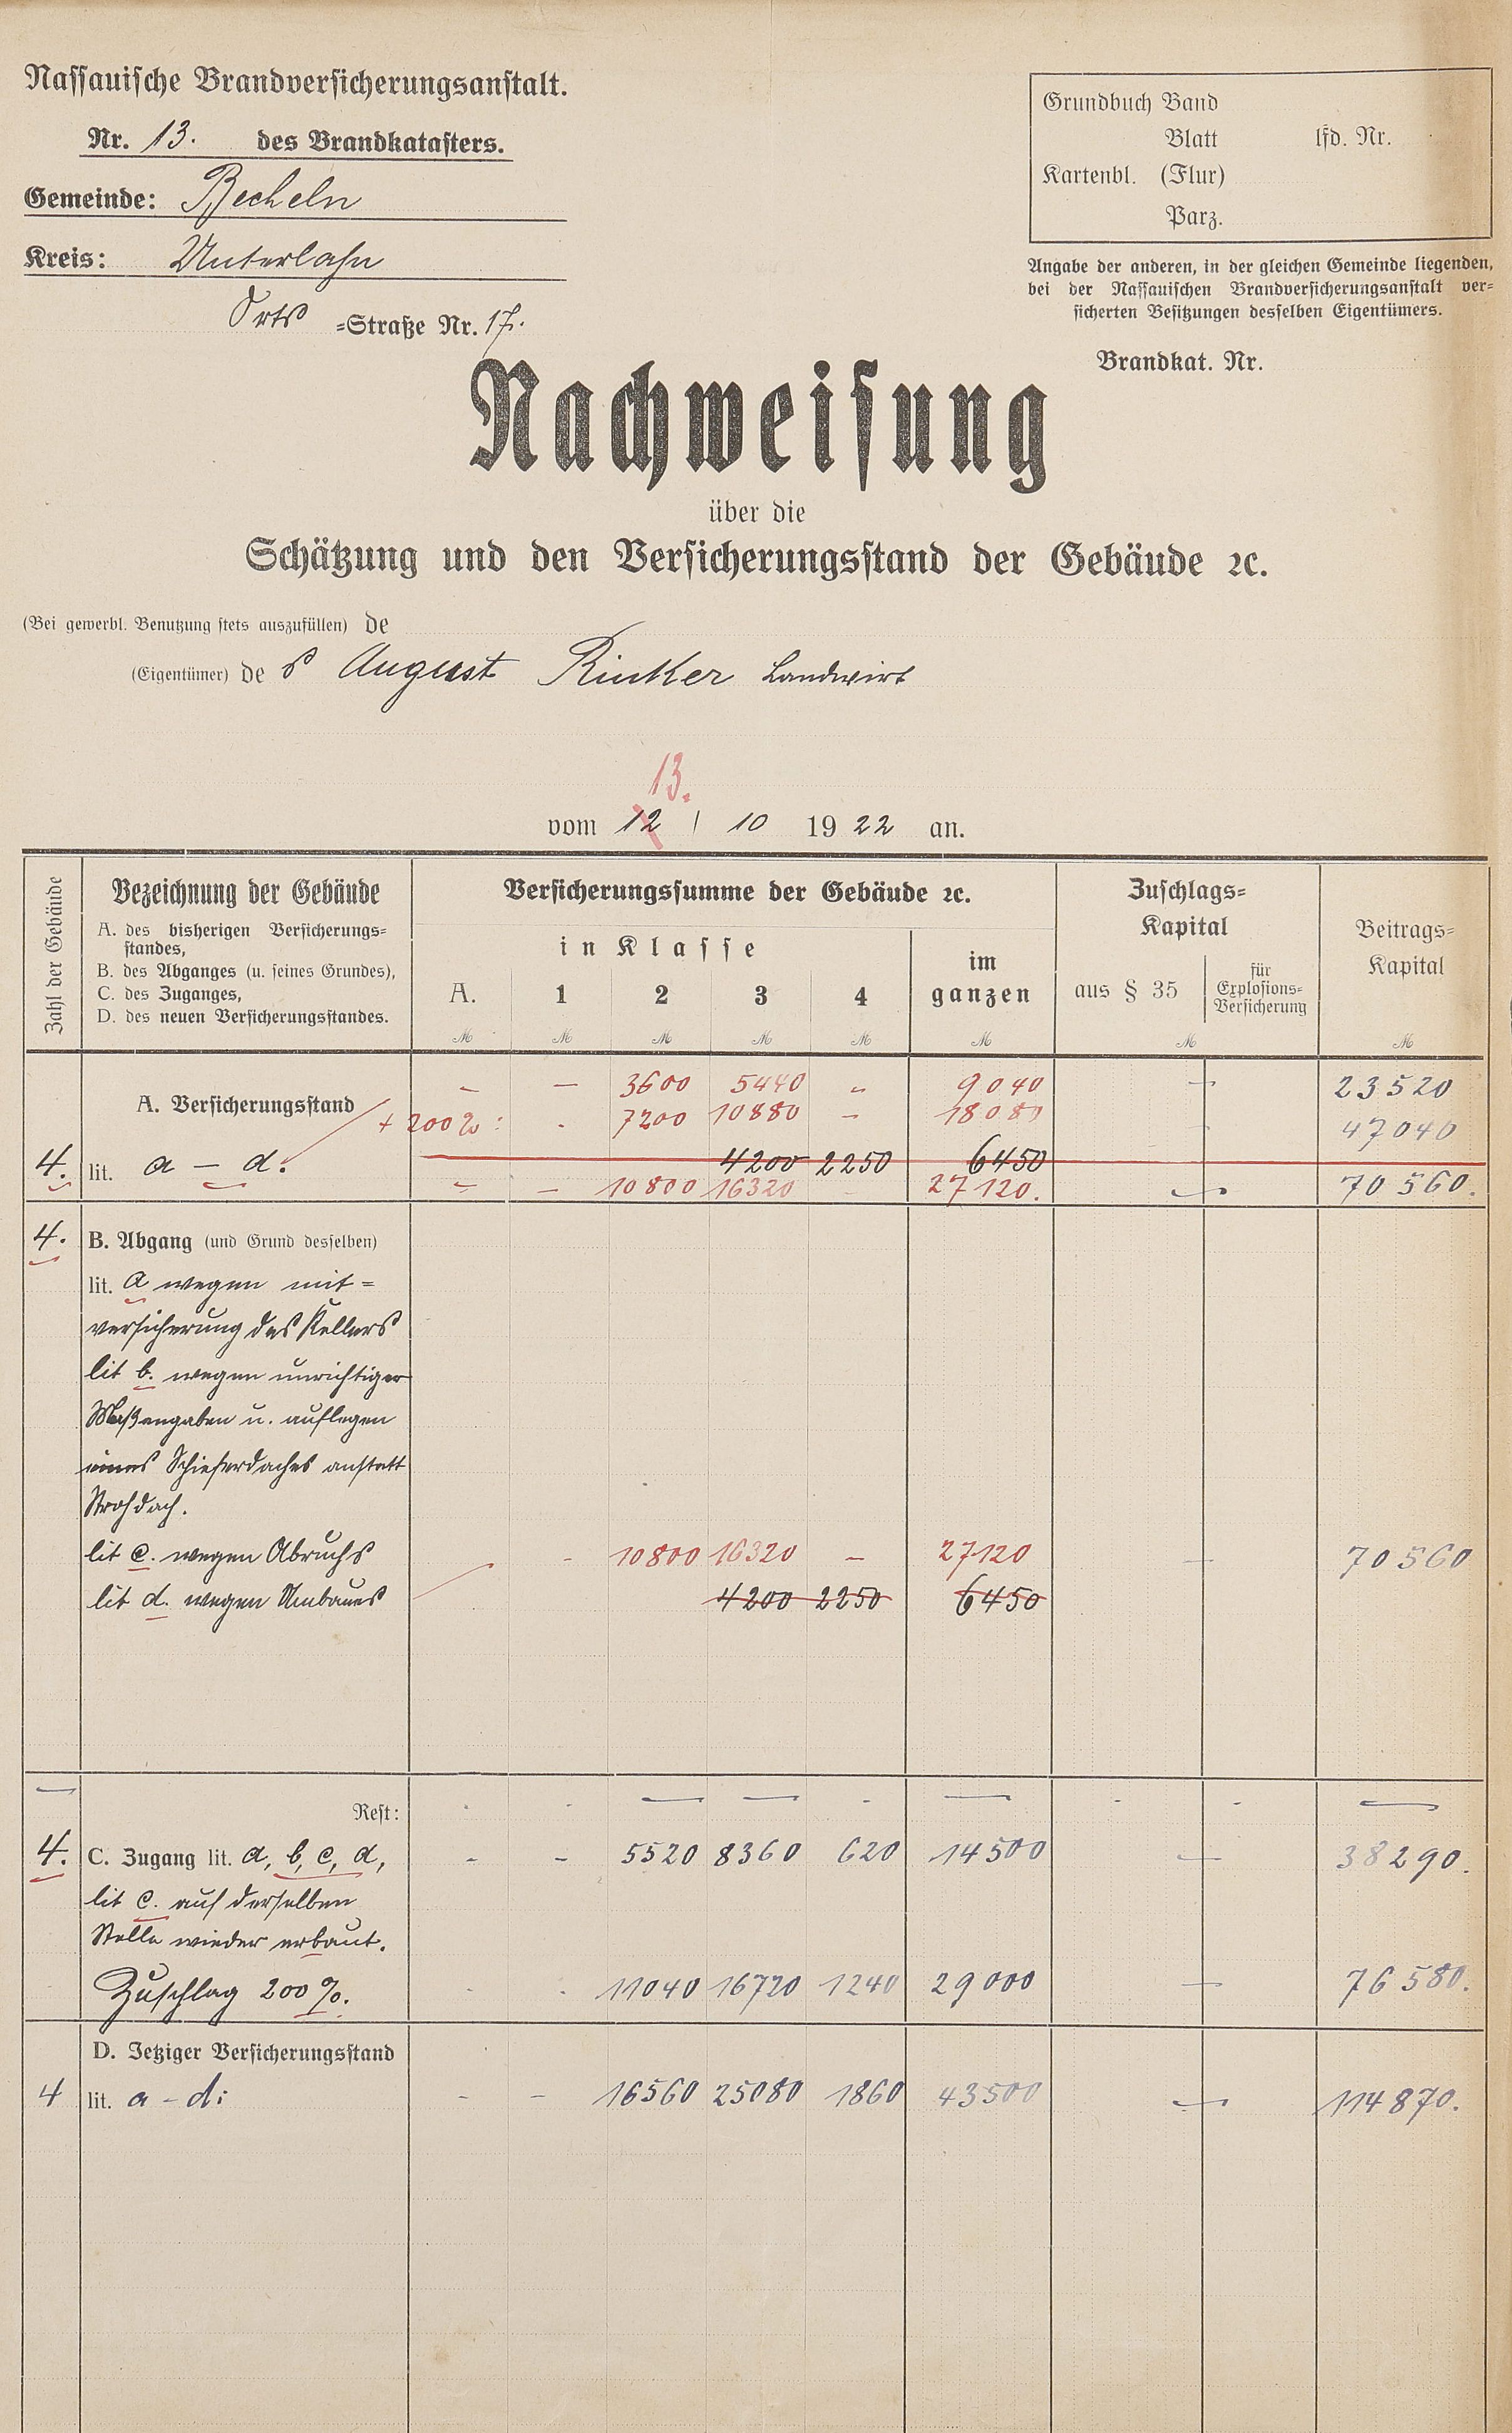 Nassauische Brandversicherungsanstalt.
Nr. 13. des Brandkatasters.
Gemeinde: Becheln
Kreis: Unterlahn
Orts =Straße Nr. 17.
Grundbuch Band
Blatt lfd. Nr.
Kartenbl. (Flur)
Parz.
Angabe der anderen, in der gleichen Gemeinde liegenden,
bei der Nassauischen Brandversicherungsanstalt ver=
sicherten Besitzungen desselben Eigentümers.
Brandkat. Nr.
Nachweisung
über die
Schätzung und den Versicherungsstand der Gebäude ꝛc.
(Bei gewerbl. Benutzung stets auszufüllen) de
(Eigentümer) de s August Rinker Landwirt
13.
vom 12 / 10 1922 an.
Zahl der Gebäude
Bezeichnung der Gebäude
A. des bisherigen Versicherungs=
standes,
B. des Abganges (u. seines Grundes),
C. des Zuganges,
D. des neuen Versicherungsstandes.
Versicherungssumme der Gebäude ꝛc.
in Klasse
A. 1 2 3 4
im
ganzen
Zuschlags=
Kapital
aus § 35
für
Explosions=
Versicherung
Beitrags=
Kapital
M M M M M M M M
A. Versicherungsstand - - 3600 5440 - 9040 - 23520
+ 200%: - 7200 10880 - 18080 47040
4. lit. a - d. 4200 2250 6450
- - 10800 16320 - 27120. - 70560.
4. B. Abgang (und Grund desselben)
lit. a wegen mit=
versicherung des Kellers
lit b. wegen unrichtiger
Maßangaben u. auflegen
eines Schieferdaches anstatt
Strohdach.
lit c. wegen Abruchs - 10800 16320 - 27120 - 70560
lit d. wegen Umbaues 4200 2250 6450
- Rest: - - - - - - - - -
4. C. Zugang lit. a, b, c, d, - - 5520 8360 620 14500 - 38290.
lit c. auf derselben
Stelle wieder erbaut.
Zuschlag 200%. - - 11040 16720 1240 29000 - 76580.
D. Jetziger Versicherungsstand
4 lit. a - d: - - 16560 25080 1860 43500 - 114870.